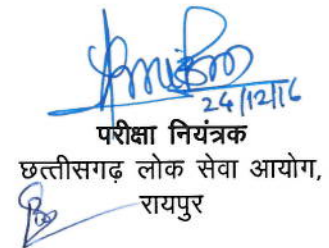 24/12/16
परीक्षा नियंत्रक
छत्तीसगढ़ लोक सेवा आयोग,
रायपुर